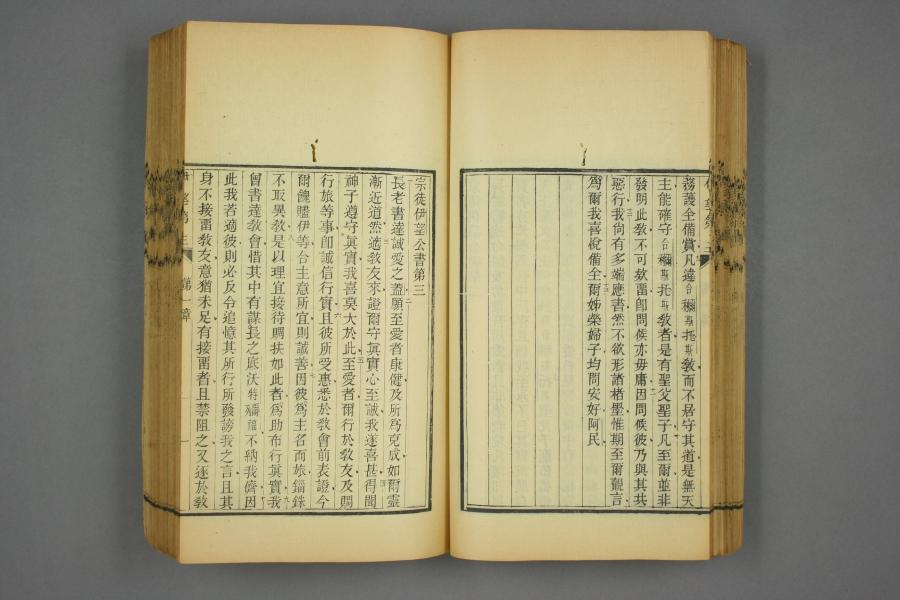 務護全備賞凡違合彌斯托斯敎而不居守其道是無天
主能確守合彌斯托斯敎者是有聖父聖子凡至爾並非
發明此敎不可欸畱卽問候亦毋庸因問候彼乃與其共
惡行我尙有多端應書然不欲形諸楮墨惟期至爾覿言
爲爾我喜悅備全爾姊榮婦子均問安好阿民
宗徒伊望公書第三
長老書達誠愛之蓋願至愛者康健及所爲克成如爾靈
漸近道然適敎友來證爾守眞實心至誠我遂喜甚得聞
神子遵守眞實我喜莫大於此至愛者爾行於敎友及賙
行旅等事卽誠信行實且彼所受惠悉於敎會前表證今
爾餽贐伊等合主意所宜則誠善因彼爲主名而旅錙銖
不取異敎是以理宜接待賙扶如此者爲助布行眞實我
曾書達敎會惜其中有謀長之底沃特彌爾不納我儕因
此我若適彼則必反令追憶其所行所發謗我之言且其
身不接畱敎友意猶未足有接畱者且禁阻之又逐於敎
第一章
一